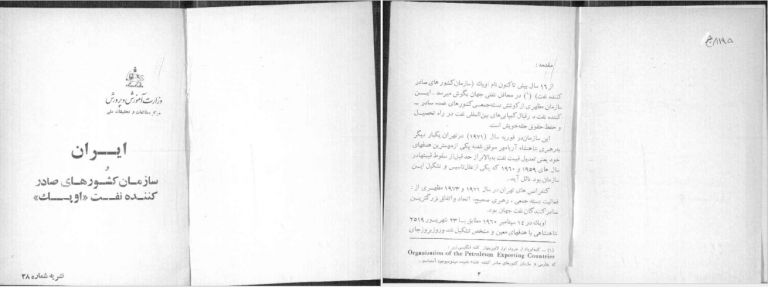 وزارت آموزش و پرورش
مرکز مطالعات و تحقیقات ملی
ایــران
و
سازمان کشورهای صادر
کننده نفت «اوپــك»
نشریه شماره ۳۸
مقدمه :
از ۱۶ سال پیش تاکنون نام اوپك (سازمان کشورهای صادر
کننده نفت) (۱) در محافل نفتی جهان بگوش میرسد. ایــن
سازمان مظهری از کوشش دسته‌جمعی کشورهای عمده صادر
کننده نفت در قبال کمپانی‌های بین‌المللی نفت در راه تحصیل
و حفظ حقوق حقه خویش است.
این سازمان در فوریه سال (۱۹۷۱) در تهران یکبار دیگر
به رهبری شاهنشاه آریامهر موفق شد به یکی از مهمترین هدفهای
خود یعنی تعدیل قیمت نفت به بالاتر از حداقل از سقوط قیمتها در
سال های ۱۹۵۹ و ۱۹۶۰ که یکی از علل تاسیس و تشکیل ایــن
سازمان بود نائل آید.
کنفرانس های تهران در سال ۱۹۷۱ و ۱۹۷۳ مظهری از :
فعالیت دسته جمعی ، رهبری صحیح، اتحاد و اتفاق بزرگتریــن
صادرکنندگان نفت جهان بود.
اوپك در ۱۴ سپتامبر ۱۹۶۰ مطابق بــا ۲۳ شهریــور ۲۵۱۹
شاهنشاهی با هدفهای معین و مشخص تشکیل شد و روز بروز جای
(۱) ــ کلمه اوپك از حروف اول کلمه انگلیسی زیر :
Organization of the Petroleum Exporting Countries
۳